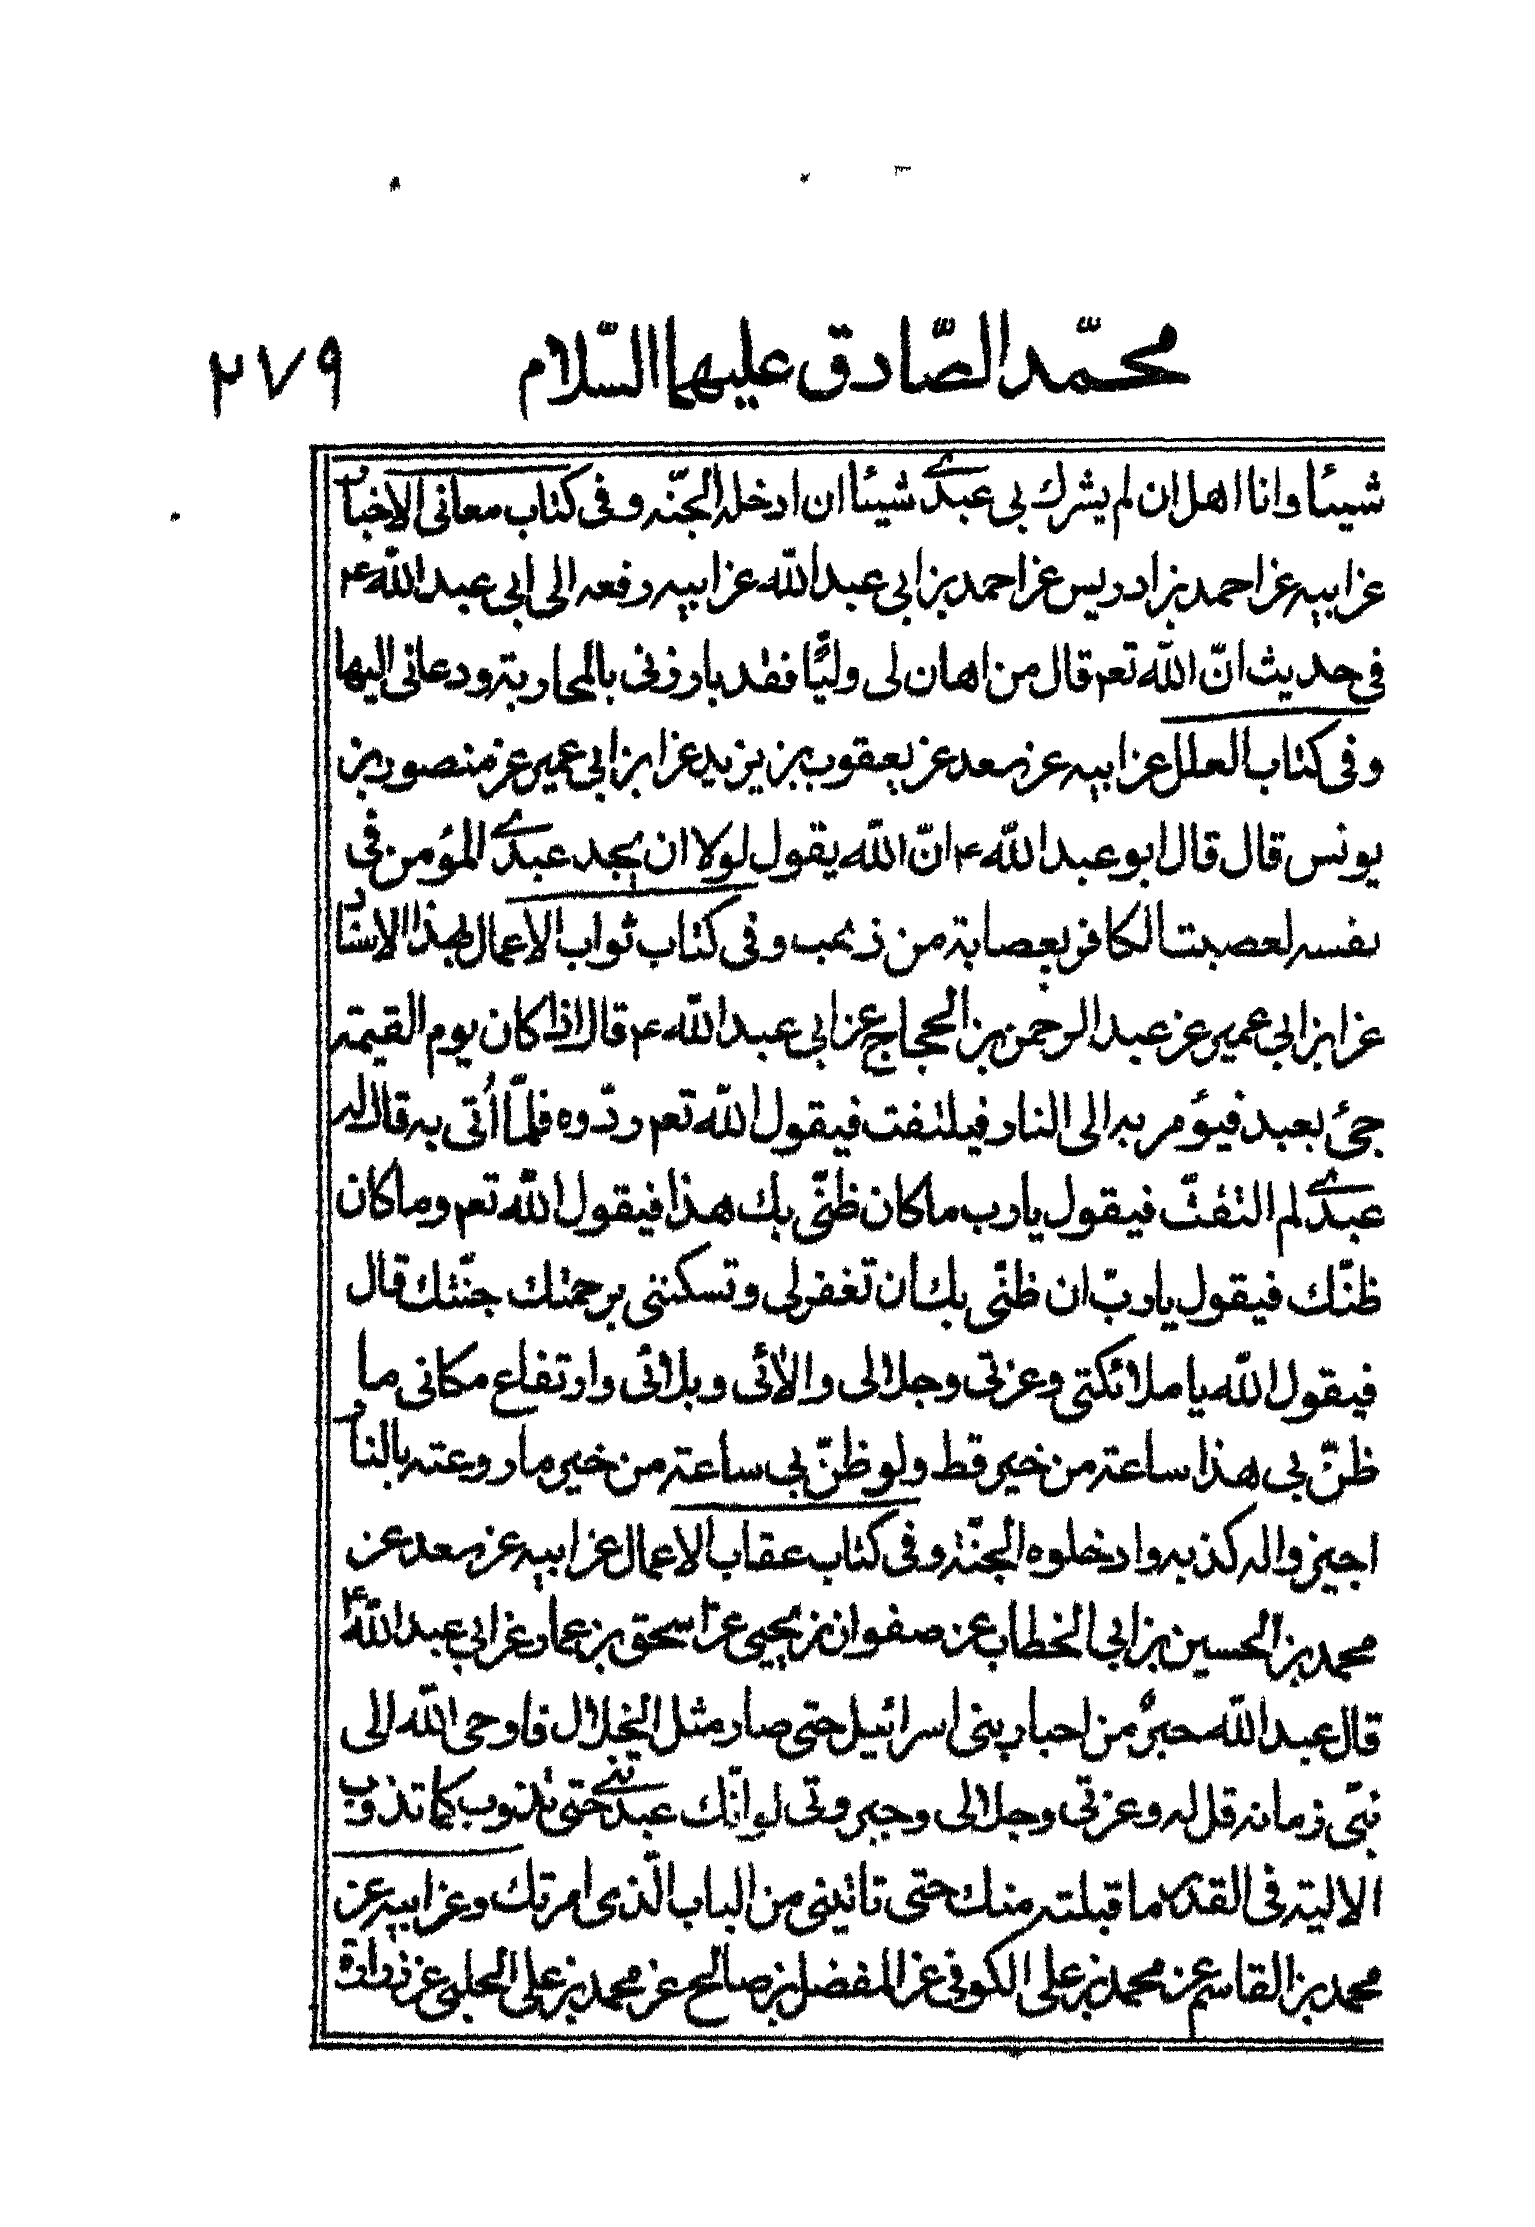 محمّد الصّادق عليهما السّلام ٢٧٩
شيئا وانا اهل ان لم يشرك بى عبدى شيئا ان ادخله الجنّة وفى كتاب معانى الاخبار
عن ابيه عن احمد بن ادريس عن احمد بن ابى عبد الله عن ابيه رفعه الى ابى عبد الله ع
فى حديث انّ الله تعم قال من اهان لى وليّا فقد بارزنى بالمحاربة ودعانى اليها
وفى كتاب العلل عن ابيه عن سعد عن يعقوب بن يزيد عن ابن ابى عمير عن منصور بن
يونس قال قال ابو عبد الله ع انّ الله يقول لولا ان يجد عبدى المؤمن فى
نفسه لعصبت الكافر بعصابة من ذهب وفى كتاب ثواب الاعمال بهذا الاسناد
عن ابن ابى عمير عن عبد الرحمن بن الحجاج عن ابى عبد الله ع قال اذا كان يوم القيمة
جئ بعبد فيؤمر به الى النار فيلتفت فيقول الله تعم ردّوه فلمّا اُتى به قال له
عبدى لم التفتّ فيقول يا رب ما كان ظنّى بك هذا فيقول الله تعم وما كان
ظنّك فيقول يا ربّ ان ظنّى بك ان تغفر لى وتسكننى برحمتك جنّتك قال
فيقول الله يا ملائكتى وعزتى وجلالى والائى وبلائى وارتفاع مكانى ما
ظنّ بى هذا ساعة من خير قط ولو ظنّ بى ساعة من خير ما روعته بالنار
اجيزوا له كذبه وادخلوه الجنّة وفى كتاب عقاب الاعمال عن ابيه عن سعد عن
محمد بن الحسين بن ابى الخطاب عن صفوان بن يحيى عن اسحق بن عمار عن ابى عبد الله ع
قال عبد الله حبرٌ من احبار بنى اسرائيل حتى صار مثل الخلال فاوحى الله الى
نبىّ زمانه قل له وعزتى وجلالى وجبروتى لو انّك عبدتنى حتى تذوب كما تذوب
الالية فى القدر ما قبلته منك حتى تاتينى من الباب الّذى امرتك وعن ابيه عن
محمد بن القاسم عن محمد بن على الكوفى عن المفضل بن صالح عن محمد بن على الحلبى عن زرارة